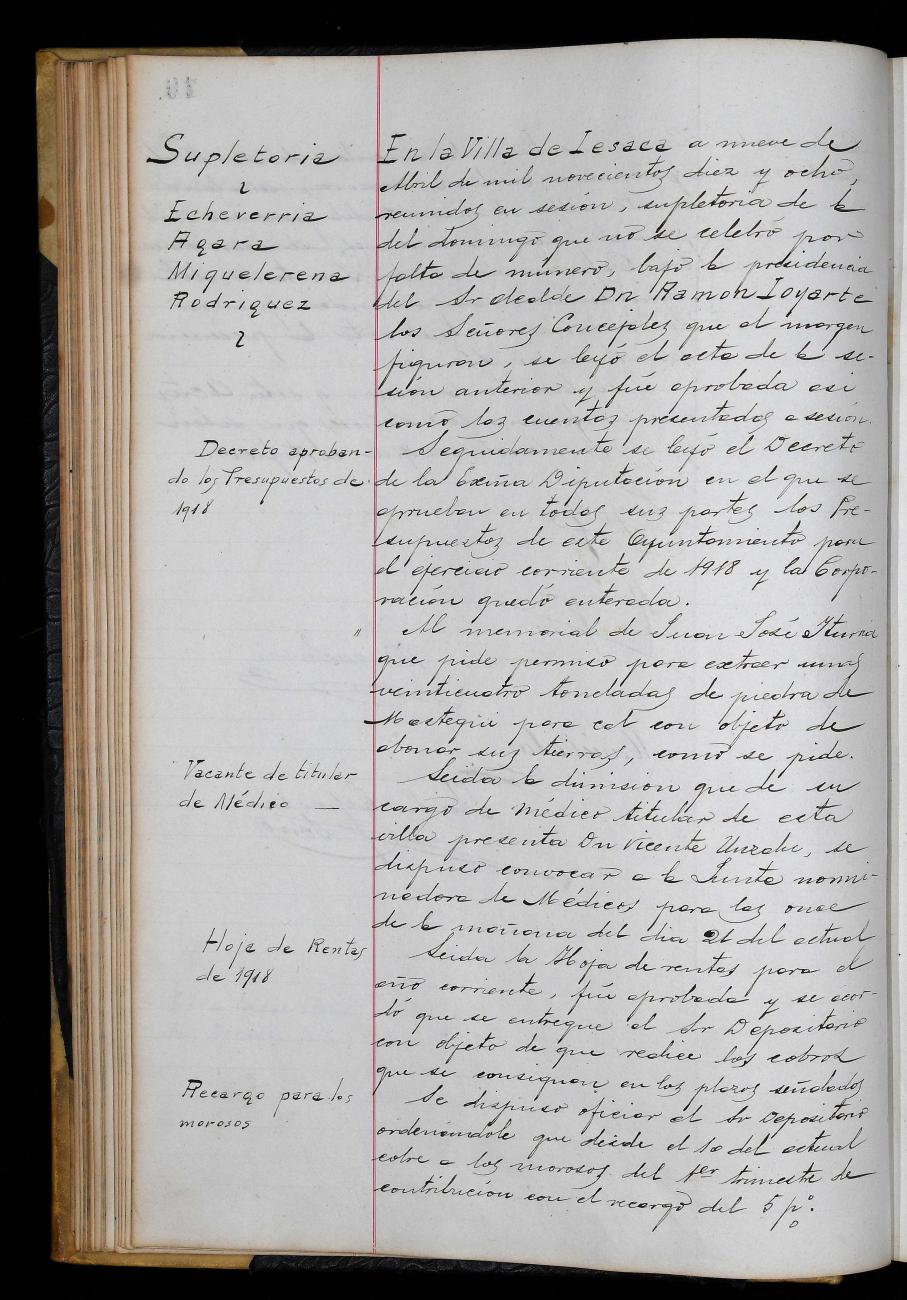 Supletoria
Echeverria
Agara
Miquelerena
Rodriguez
En la Villa de Lesaca a nueve de
Abril de mil novecientos diez y ocho,
reunidos en sesión, supletoria de la
del domingo que no se celebró por
falta de número, bajo la presidencia
del Sr Alcalde Dn Ramon Loyarte
los Señores Concejales que al margen
figuran, se leyó el acta de la se-
sión anterior y fué aprobada asi
como las cuentas presentadas a sesión.
Decreto aproban-
do los Presupuestos de
1918
Seguidamente se leyó el Decreto
de la Exma Diputación en el que se
aprueban en todas sus partes los Pre-
supuestos de este Ayuntamiento para
el ejercicio corriente de 1918 y la Corpo-
ración quedó enterada.
" Al memorial de Juan José Iturria
que pide permiso para extraer unas
veinticuatro toneladas de piedra de
Mastegui para cal con objeto de
abonar sus tierras, como se pide.
Vacante de titular
de Médico —
Leida la dimision que de su
cargo de Médico titular de esta
villa presenta Dn Vicente, se
dispuso convocar a la Junta nomi-
nadora de Médicos para las once
de la mañana del dia 21 del actual
Hoja de Rentas
de 1918
Leida la Hoja de rentas para el
año corriente, fué aprobada y se acor-
dó que se entregue al Sr Depositario
con objeto de que realice los cobros
que se consignan en los plazos señalados
Recargo para los
morosos
Se dispuso oficiar al Sr Depositario
ordenándole que desde el 10 del actual
cobre a los morosos del 1er trimestre de
contribución con el recargo del 5 p%.